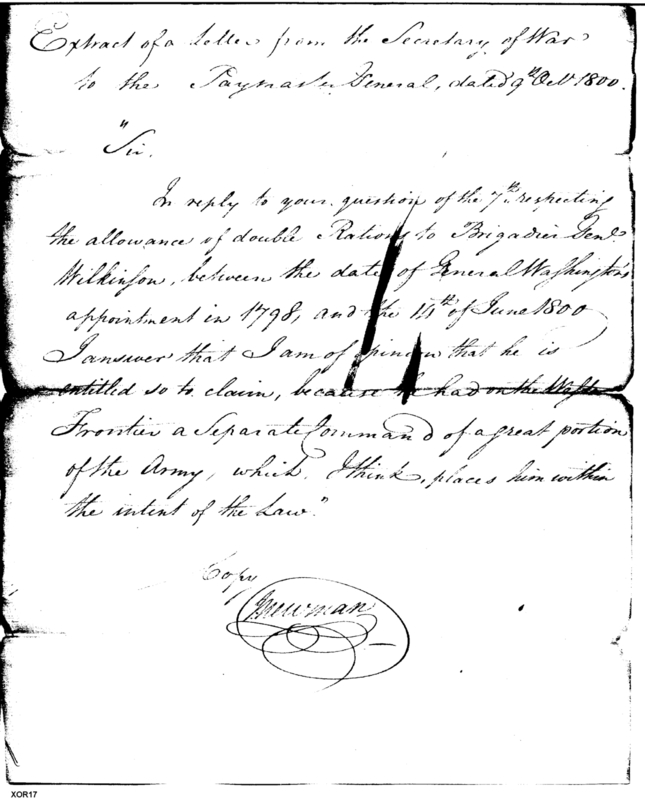 Extract of a letter from the Secretary of War
to the Paymaster General, dated 9th Octr 1800.
"Sir.
In reply to your question of the 7th respecting
the allowance of double Rations to Brigadier Genl.
Wilkinson, between the date of General Washington's
appointment in 1798, and the 14th of June 1800
I answer that I am of opinion that he is
entitled so to claim, because he had on the
Frontier a Separate Command of a great portion
of the Army, which, I think, places him within
the intent of the Law."
Copy
Newman
XOR17